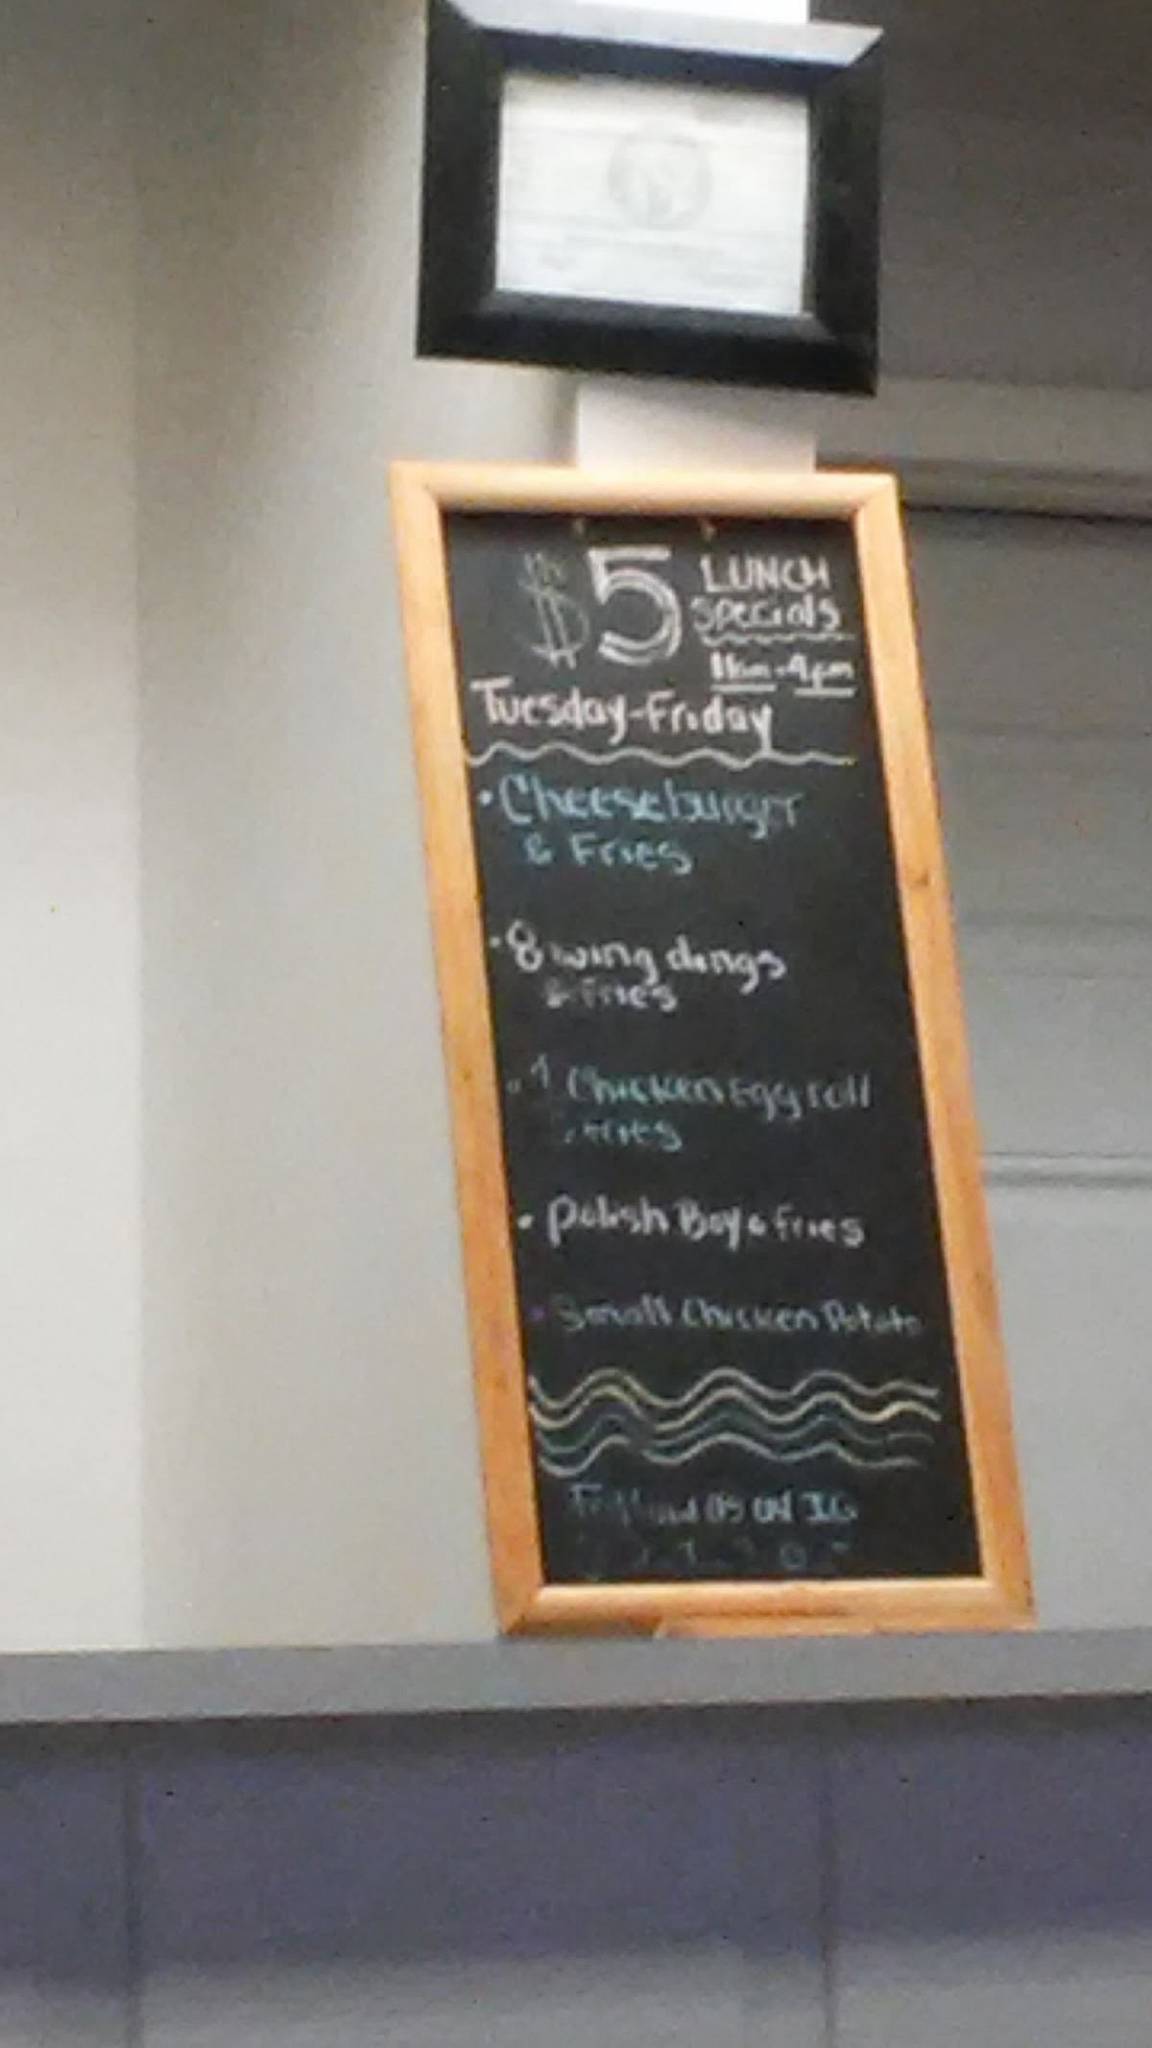 $5 LUNCH
Specials
11am-4pm
Tuesday-Friday
• Cheeseburger
& Fries
• 8 wing dings
& Fries
• 1 Chicken Egg roll
& Fries
• Polish Boy & fries
• Small Chicken Potato
ON IG